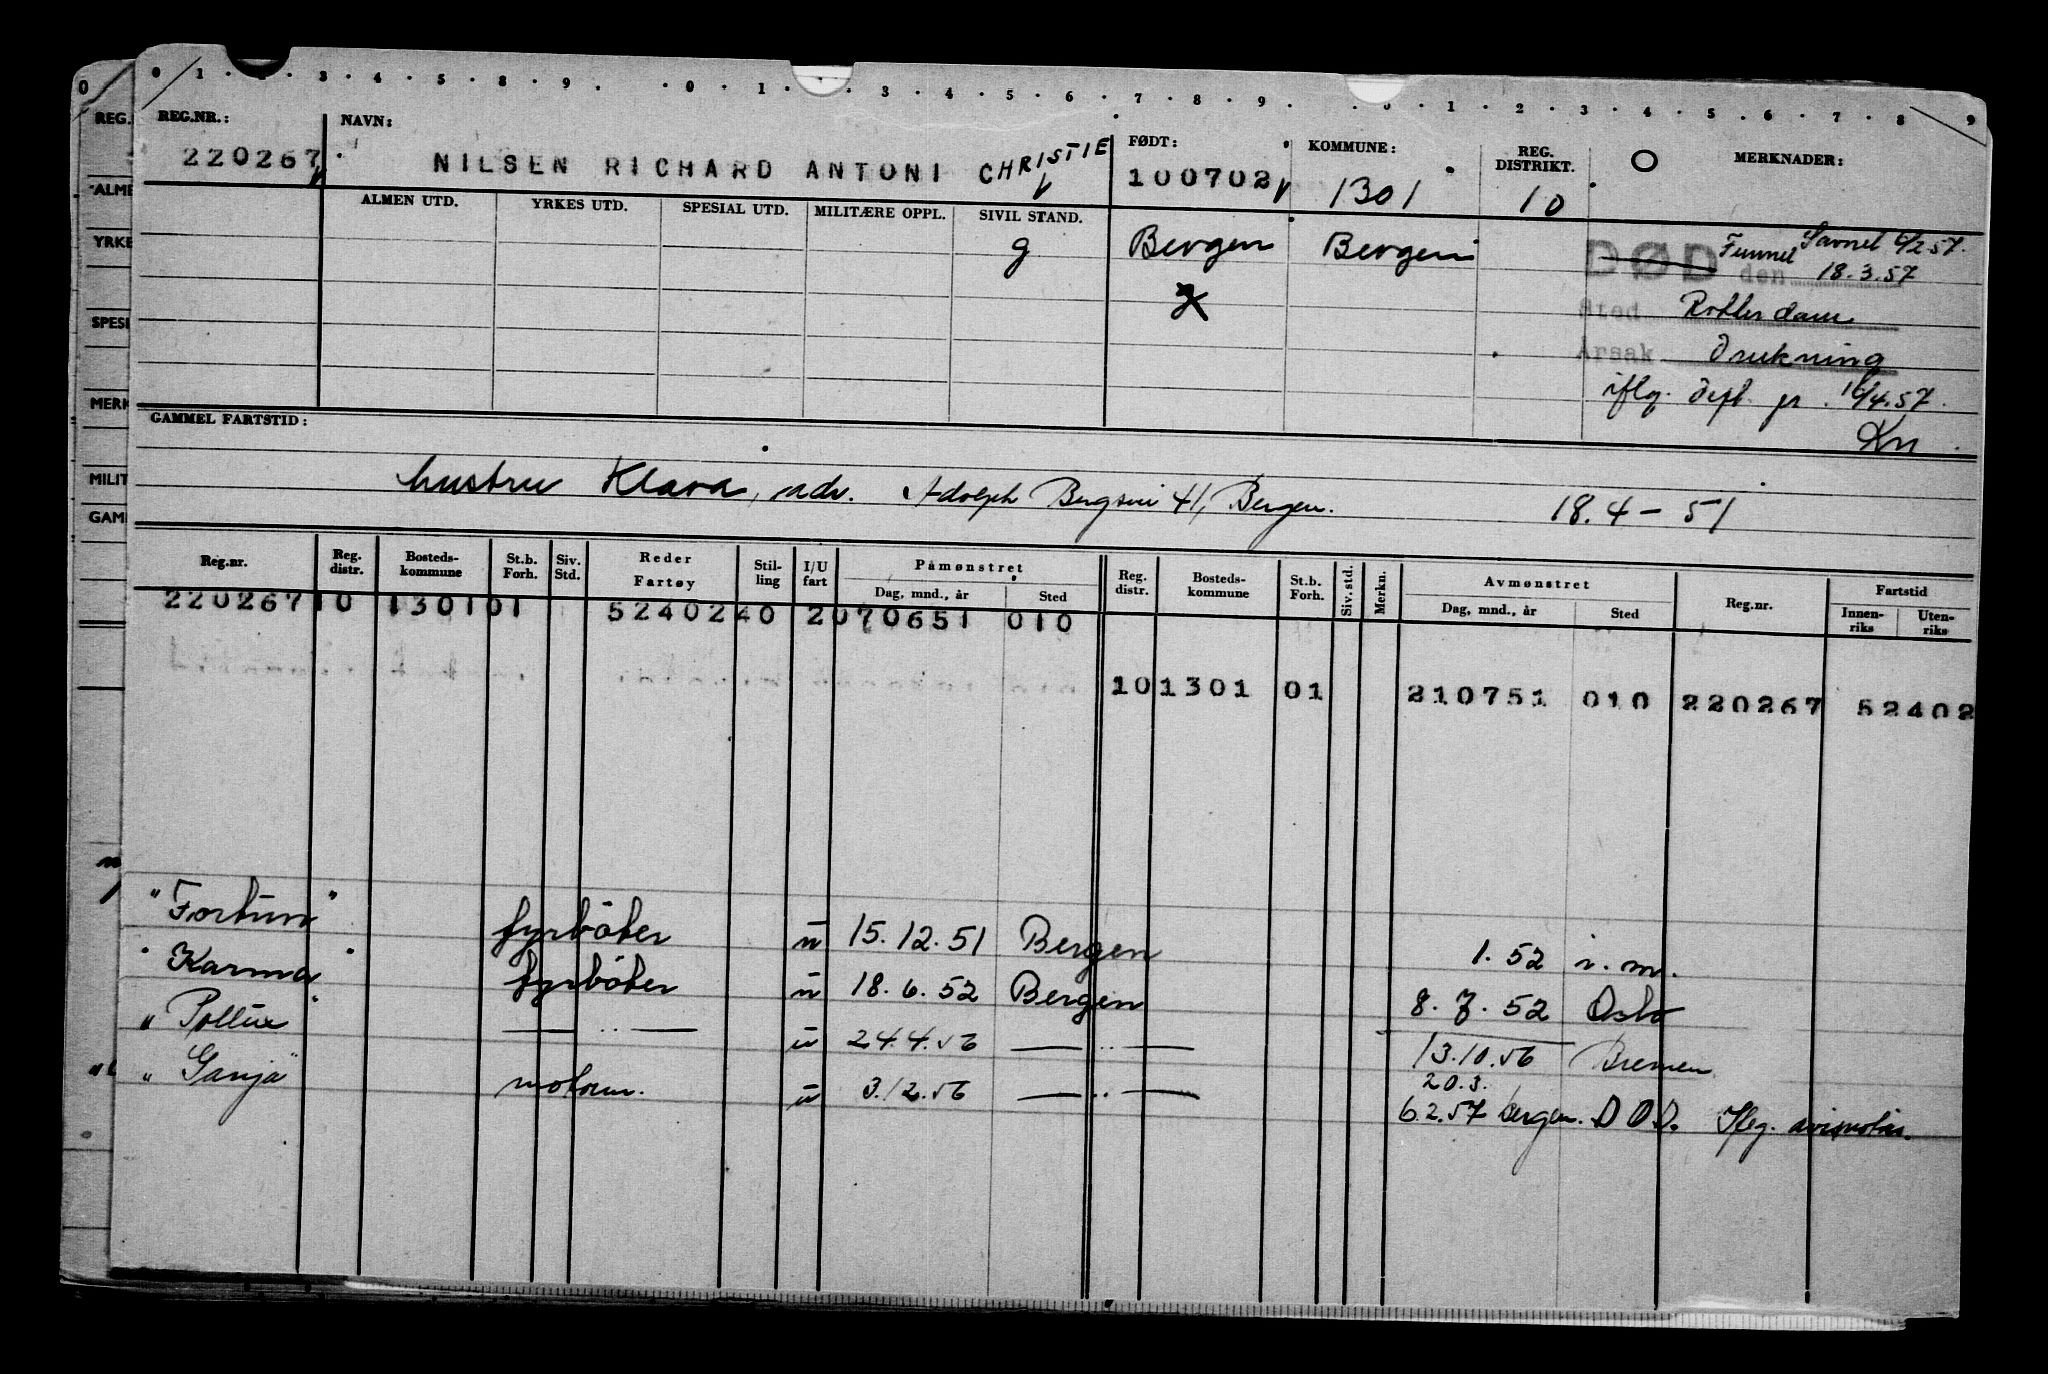 0 1 . 2 . 3 . 4 . 5 . 8 . 9 . . 0 . 1 . . 3 . 4 . 5 . 6 . 7 . 8 . 9 . . 0 . 1 . 2 . 3 . 4 . 5 . 6 . 7 . 8 9
REG.NR.: NAVN: FØDT: KOMMUNE: REG. DISTRIKT. O MERKNADER:
220267 NILSEN RICHARD ANTONI CHRISTIE 100702 1301 10
ALMEN UTD. YRKES UTD. SPESIAL UTD. MILITÆRE OPPL. SIVIL STAND.
g Bergen Bergen DØD den Funnet Savnet 6/2 57.
18.3.57
Sted Rotterdam
Årsak Drukning
iflg. dept. pr. 16/4.57.
Kn
GAMMEL FARTSTID:
hustru Klara, adr. Adolph Bergsvei 41, Bergen. 18.4-51
Reg.nr. Reg. distr. Bosteds-kommune St.b. Forh. Siv. Std. Reder Fartøy Stil-ling I/U fart Påmønstret Dag, mnd., år Sted Reg. distr. Bosteds-kommune St.b. Forh. Siv. std. Merkn. Avmønstret Dag, mnd., år Sted Reg.nr. Fartstid Innen-riks Uten-riks
220267 10 1301 01 52402 40 2 070651 010
10 1301 01 210751 010 220267 52402
"Fortun" fyrbøter u 15.12.51 Bergen 1.52 i.m.
"Karma" fyrbøter u 18.6.52 Bergen 8.7.52 Oslo
"Pollux" — " — u 24.4.56 — " — 13.10.56 Bremen
"Ganja" motorm. u 3.12.56 — " — 20.3.
6.2.57 bergen. DØD. Iflg. avisnotis.